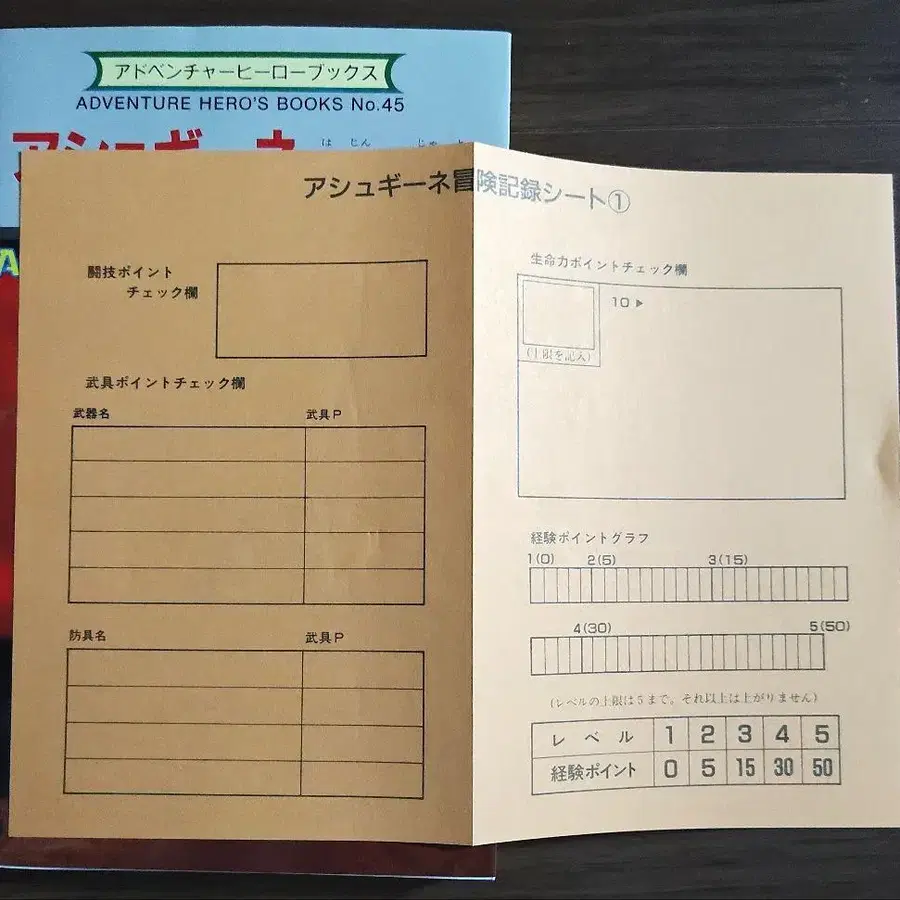 アドベンチャーヒーローブックス
ADVENTURE HERO'S BOOKS No.45
アシュギーネ
はじん
アシュギーネ冒険記録シート①
闘技ポイント
チェック欄
武具ポイントチェック欄
武器名 武具P
防具名 武具P
生命力ポイントチェック欄
10▶
(上限を記入)
経験ポイントグラフ
1(0) 2(5) 3(15)
4(30) 5(50)
(レベルの上限は5まで。それ以上は上がりません)
レベル 1 2 3 4 5
経験ポイント 0 5 15 30 50